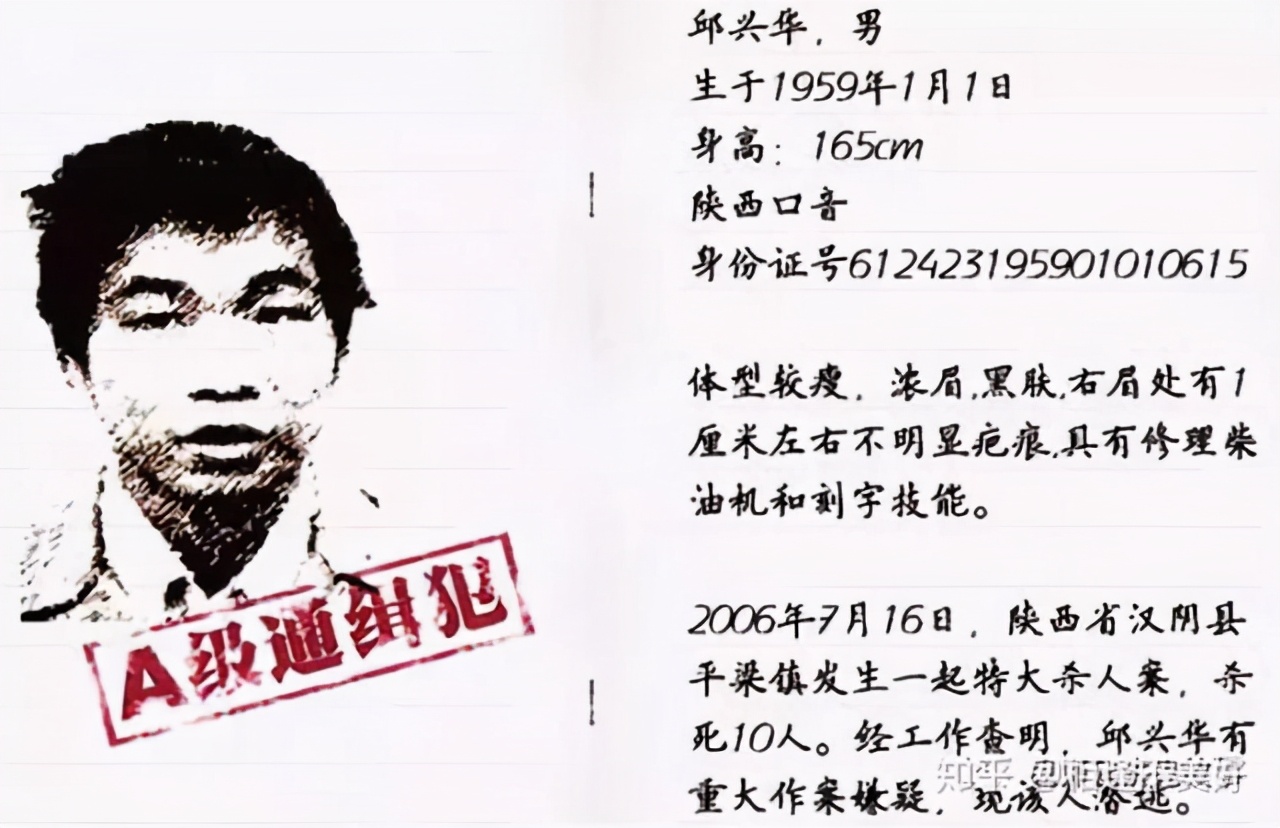 邱兴华，男
生于1959年1月1日
身高：165cm
陕西口音
身份证号612423195901010615
体型较瘦，浓眉,黑肤,右眉处有1
厘米左右不明显疤痕,具有修理柴
油机和刻字技能。
2006年7月16日，陕西省汉阴县
平梁镇发生一起特大杀人案，杀
死10人。经工作查明，邱兴华有
重大作案嫌疑，现该人潜逃。
A级通缉犯
知乎